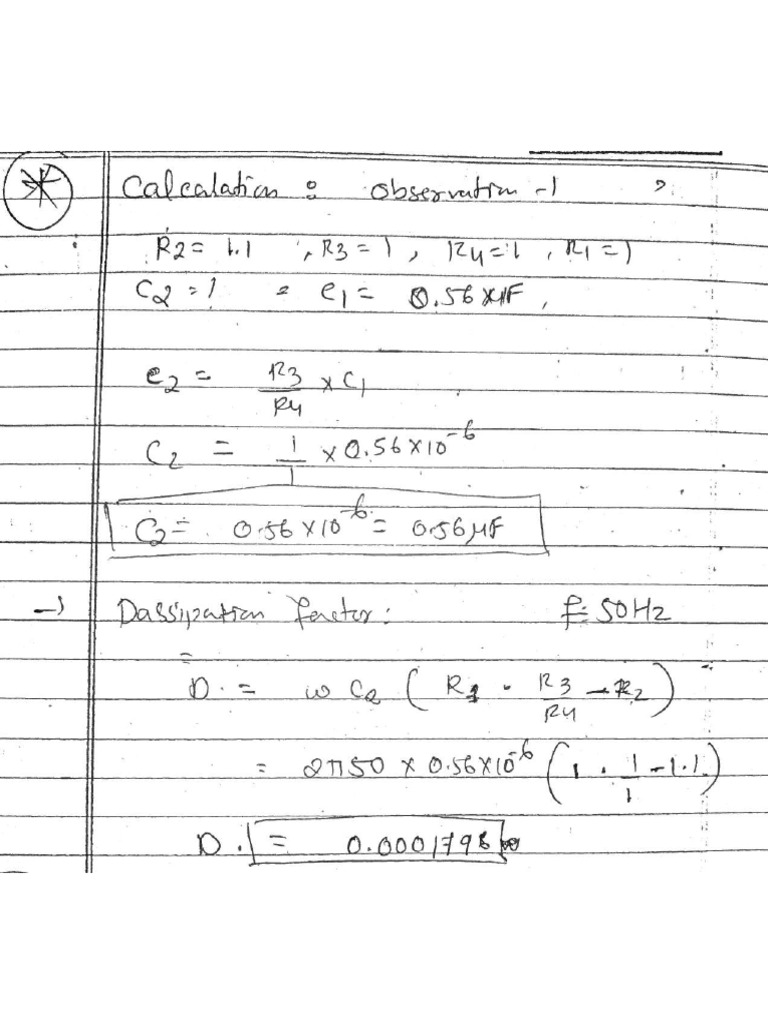 Calculation : observation -1
R2 = 1.1 , R3 = 1 , R4 = 1 , R1 = 1
C2 = ! = C1 = 0.56 μF ,
C2 = R3/R4 × C1
C2 = 1/1 × 0.56×10^-6
C2 = 0.56×10^-6 = 0.56 μF
→ Dassipation factor : f = 50Hz
=
D. = ω C2 ( R1 · R3/R4 - R2 )
= 2π50 × 0.56×10^-6 ( 1 · 1/1 - 1.1 )
D. = 0.0001798